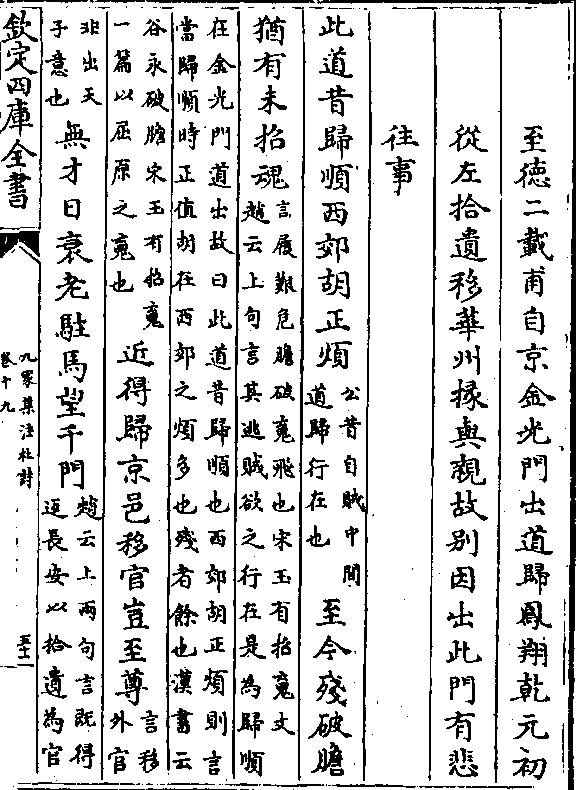 至德二載甫自京金光門出道歸鳳翔乾元初
從左拾遺移華州掾與親故別因出此門有悲
往事
此道昔歸順西郊胡正煩公昔自賊中間道歸行在也至今殘破膽
猶有未招魂言履艱危膽破䰟飛也宋玉有招䰟文趙云上句言其逃賊欲之行在是為歸順
在金光門道出故曰此道昔歸順也西郊胡正煩則言
當歸順時正值胡在西郊之煩多也殘者餘也漢書云
谷永破膽宋玉有招䰟
一篇以屈原之䰟也近得歸京邑移官豈至尊言移外官
非出天
子意也無才日衰老駐馬望千門趙云上兩句言既得近長安以拾遺為官
欽定四庫全書
九家集注杜詩
卷十九
五十一